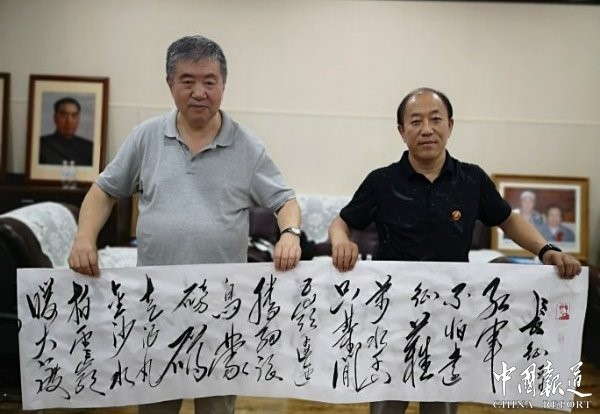 长征
红军
不怕远
征难
万水千山
只等闲
五岭逶迤
腾细浪
乌蒙
磅礴
走泥丸
金沙水
拍云崖
暖大渡
中国报道
CHINA REPORT